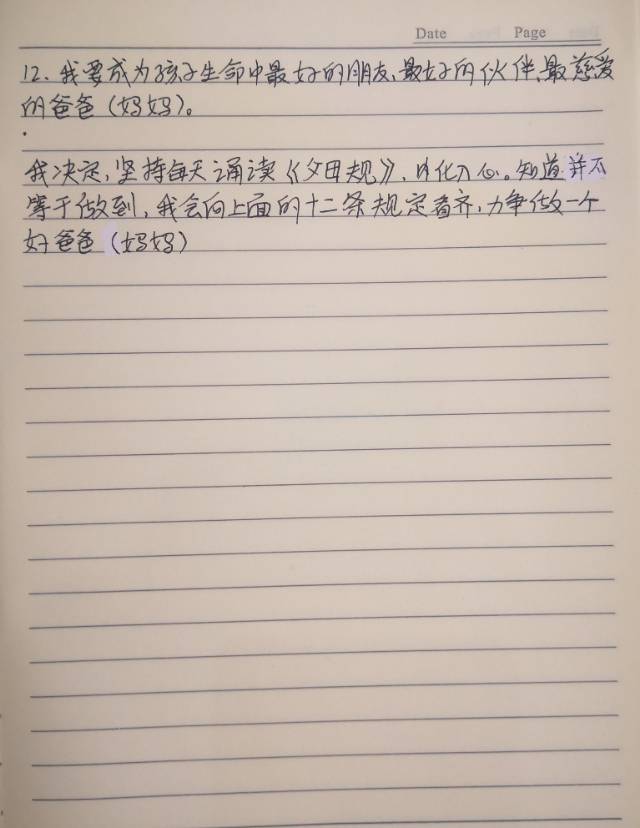 Date Page
12. 我要成为孩子生命中最好的朋友、最好的伙伴、最慈爱
的爸爸(妈妈)。
我决定,坚持每天诵读《父母规》,内化入心。知道并不
等于做到,我会向上面的十二条规定看齐,力争做一个
好爸爸(妈妈)